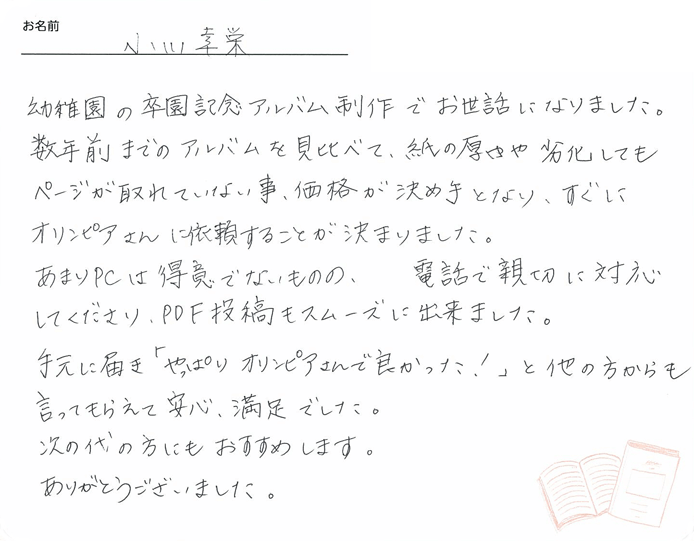 お名前
幸栄
幼稚園の卒園記念アルバム制作でお世話になりました。
数年前までのアルバムを見比べて、紙の厚さや劣化しても
ページが取れていない事、価格が決め手となり、すぐに
オリンピアさんに依頼することが決まりました。
あまりPCは得意でないものの、電話で親切に対応
してくださり、PDF投稿もスムーズに出来ました。
手元に届き「やっぱりオリンピアさんで良かった!」と他の方からも
言ってもらえて安心、満足でした。
次の代の方にもおすすめします。
ありがとうございました。